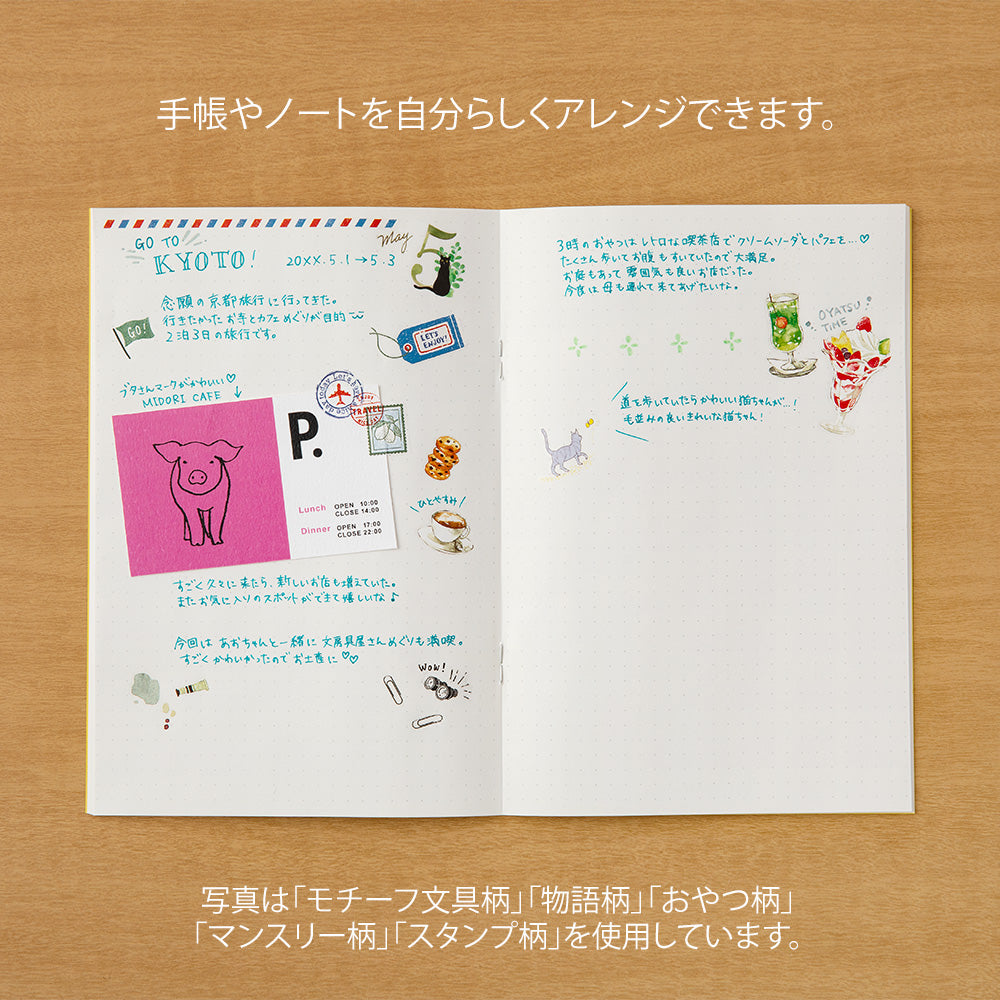 手帳やノートを自分らしくアレンジできます。
GO TO
KYOTO!
20XX.5.1→5.3
May
5
念願の京都旅行に行ってきた。
行きたかったお寺とカフェめぐりが目的
2泊3日の旅行です。
GO!
LET'S
ENJOY!
ブタさんマークがかわいい♡
MIDORI CAFE
P.
TRAVEL
Lunch OPEN 10:00
CLOSE 14:00
Dinner OPEN 17:00
CLOSE 22:00
ひとやすみ
すごく久々に来たら、新しいお店も増えていた。
またお気に入りのスポットができて嬉しいな♪
今回はあおちゃんと一緒に文房具屋さんめぐりも満喫。
すごくかわいかったのでお土産に♡♡
Wow!
3時のおやつはレトロな喫茶店でクリームソーダとパフェを…♡
たくさん歩いてお腹もすいていたので大満足。
お庭もあって雰囲気も良いお店だった。
今度は母も連れて来てあげたいな。
OYATSU
TIME
道を歩いていたらかわいい猫ちゃんが…!
毛並みの良いきれいな猫ちゃん!
写真は「モチーフ文具柄」「物語柄」「おやつ柄」
「マンスリー柄」「スタンプ柄」を使用しています。